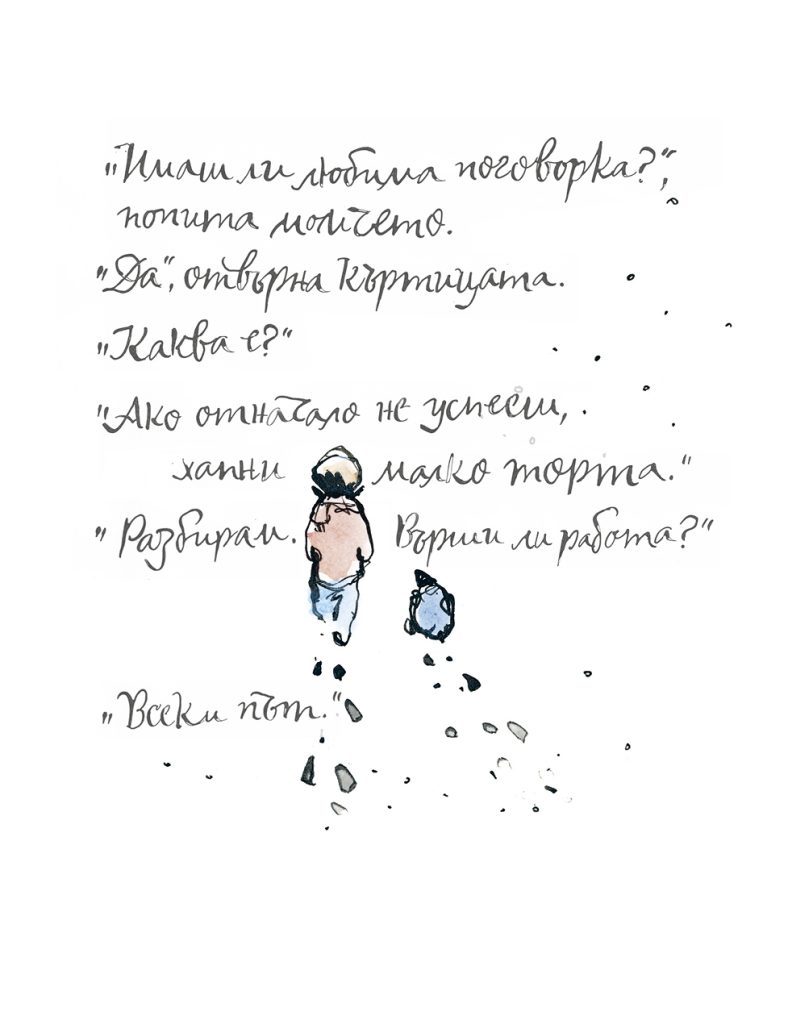 „Имаш ли любима поговорка?“,
попита момчето.
"Да“, отвърна къртицата.
„Каква е?“
"Ако отначало не успееш,
хапни малко торта."
"Разбирам. Върши ли работа?"
„Всеки път."